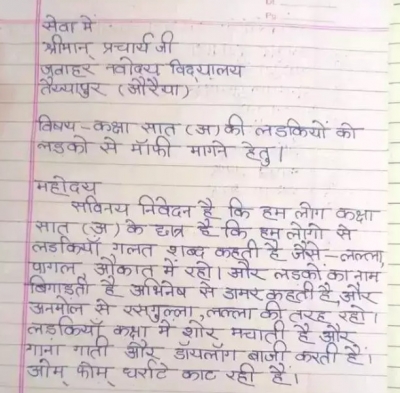 सेवा में
श्रीमान् प्रचार्य जी
जवाहर नवोदय विद्यालय
तैय्यापुर (औरैया)
विषय - कक्षा सात (अ) की लडकियों को
लडको से मॉफी मागने हेतु।
महोदय
सविनय निवेदन है कि हम लोग कक्षा
सात (अ) के छात्र है कि हम लोगो से
लडकियाँ गलत शब्द कहती है जैसे - लल्ला,
पागल, औकात में रहो। और लडकों का नाम
बिगाड़ती है अभिनेष से डामर कहती है और
अनमोल से रसगुल्ला, लल्ला की तरह रहो।
लडकियाँ कक्षा में शोर मचाती है और
गाना गाती और डॉयलॉग बाजी करती है।
ओम् फोम् घर्राटे काट रही है।